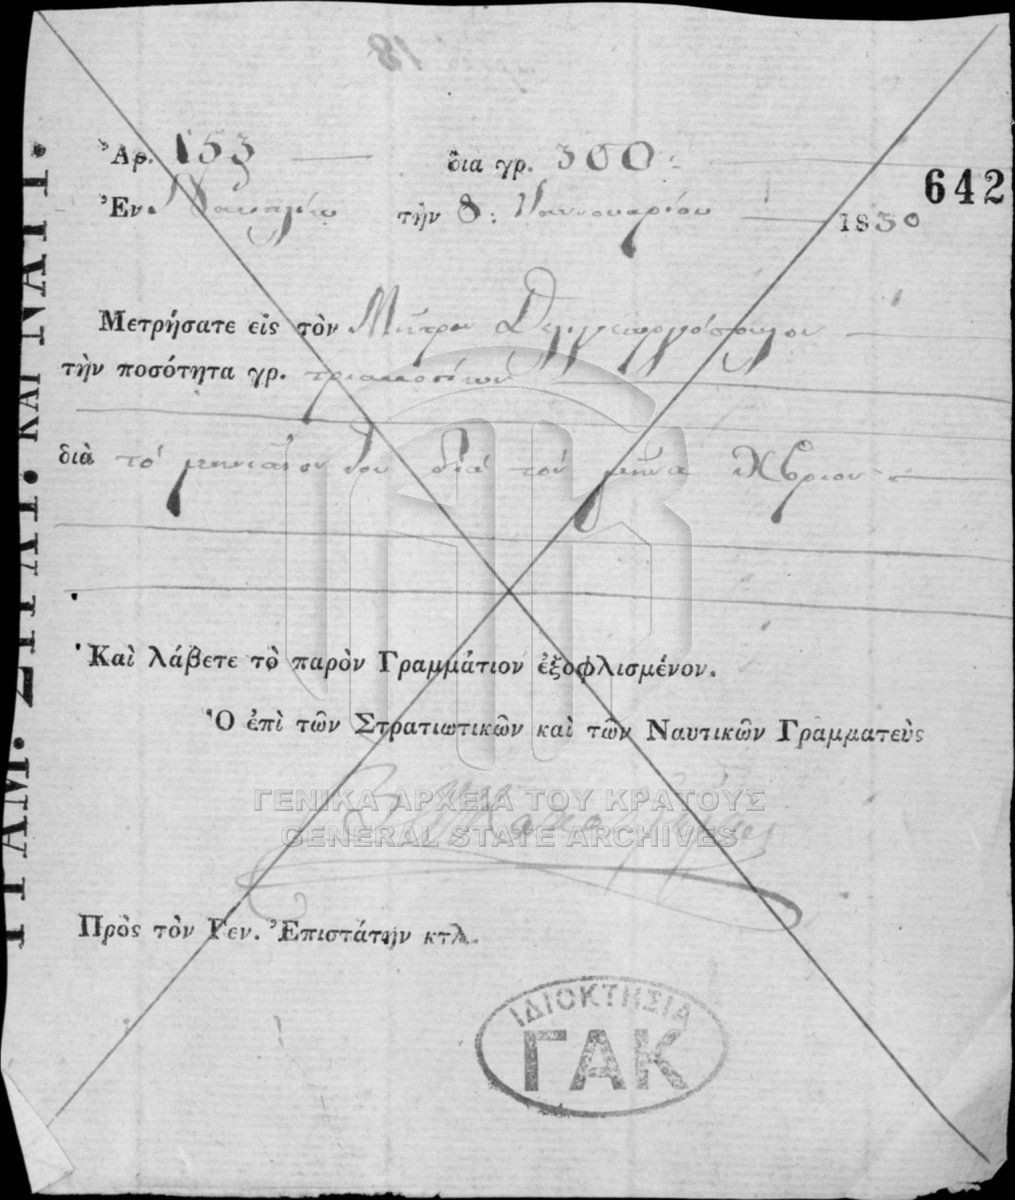 Ἀρ. 153 διὰ γρ. 300:
642
Ἐν Ναυπλίῳ τὴν 8: Ἰαννουαρίου 1830
Μετρήσατε εἰς τὸν Μῆτρον Δεληγεωργόπουλον
τὴν ποσότητα γρ. τριακοσίων
διὰ τὸ μηνιαῖον του διὰ τὸν μῆνα Χβριον
Καὶ λάβετε τὸ παρὸν Γραμμάτιον ἐξοφλισμένον.
Ὁ ἐπὶ τῶν Στρατιωτικῶν καὶ τῶν Ναυτικῶν Γραμματεὺς
ΓΕΝΙΚΑ ΑΡΧΕΙΑ ΤΟΥ ΚΡΑΤΟΥΣ
GENERAL STATE ARCHIVES
Πρὸς τὸν Γεν. Ἐπιστάτην κτλ.
ΙΔΙΟΚΤΗΣΙΑ
ΓΑΚ
ΓΡΑΜ. ΣΤΡΑΤ. ΚΑΙ ΝΑΥΤ.